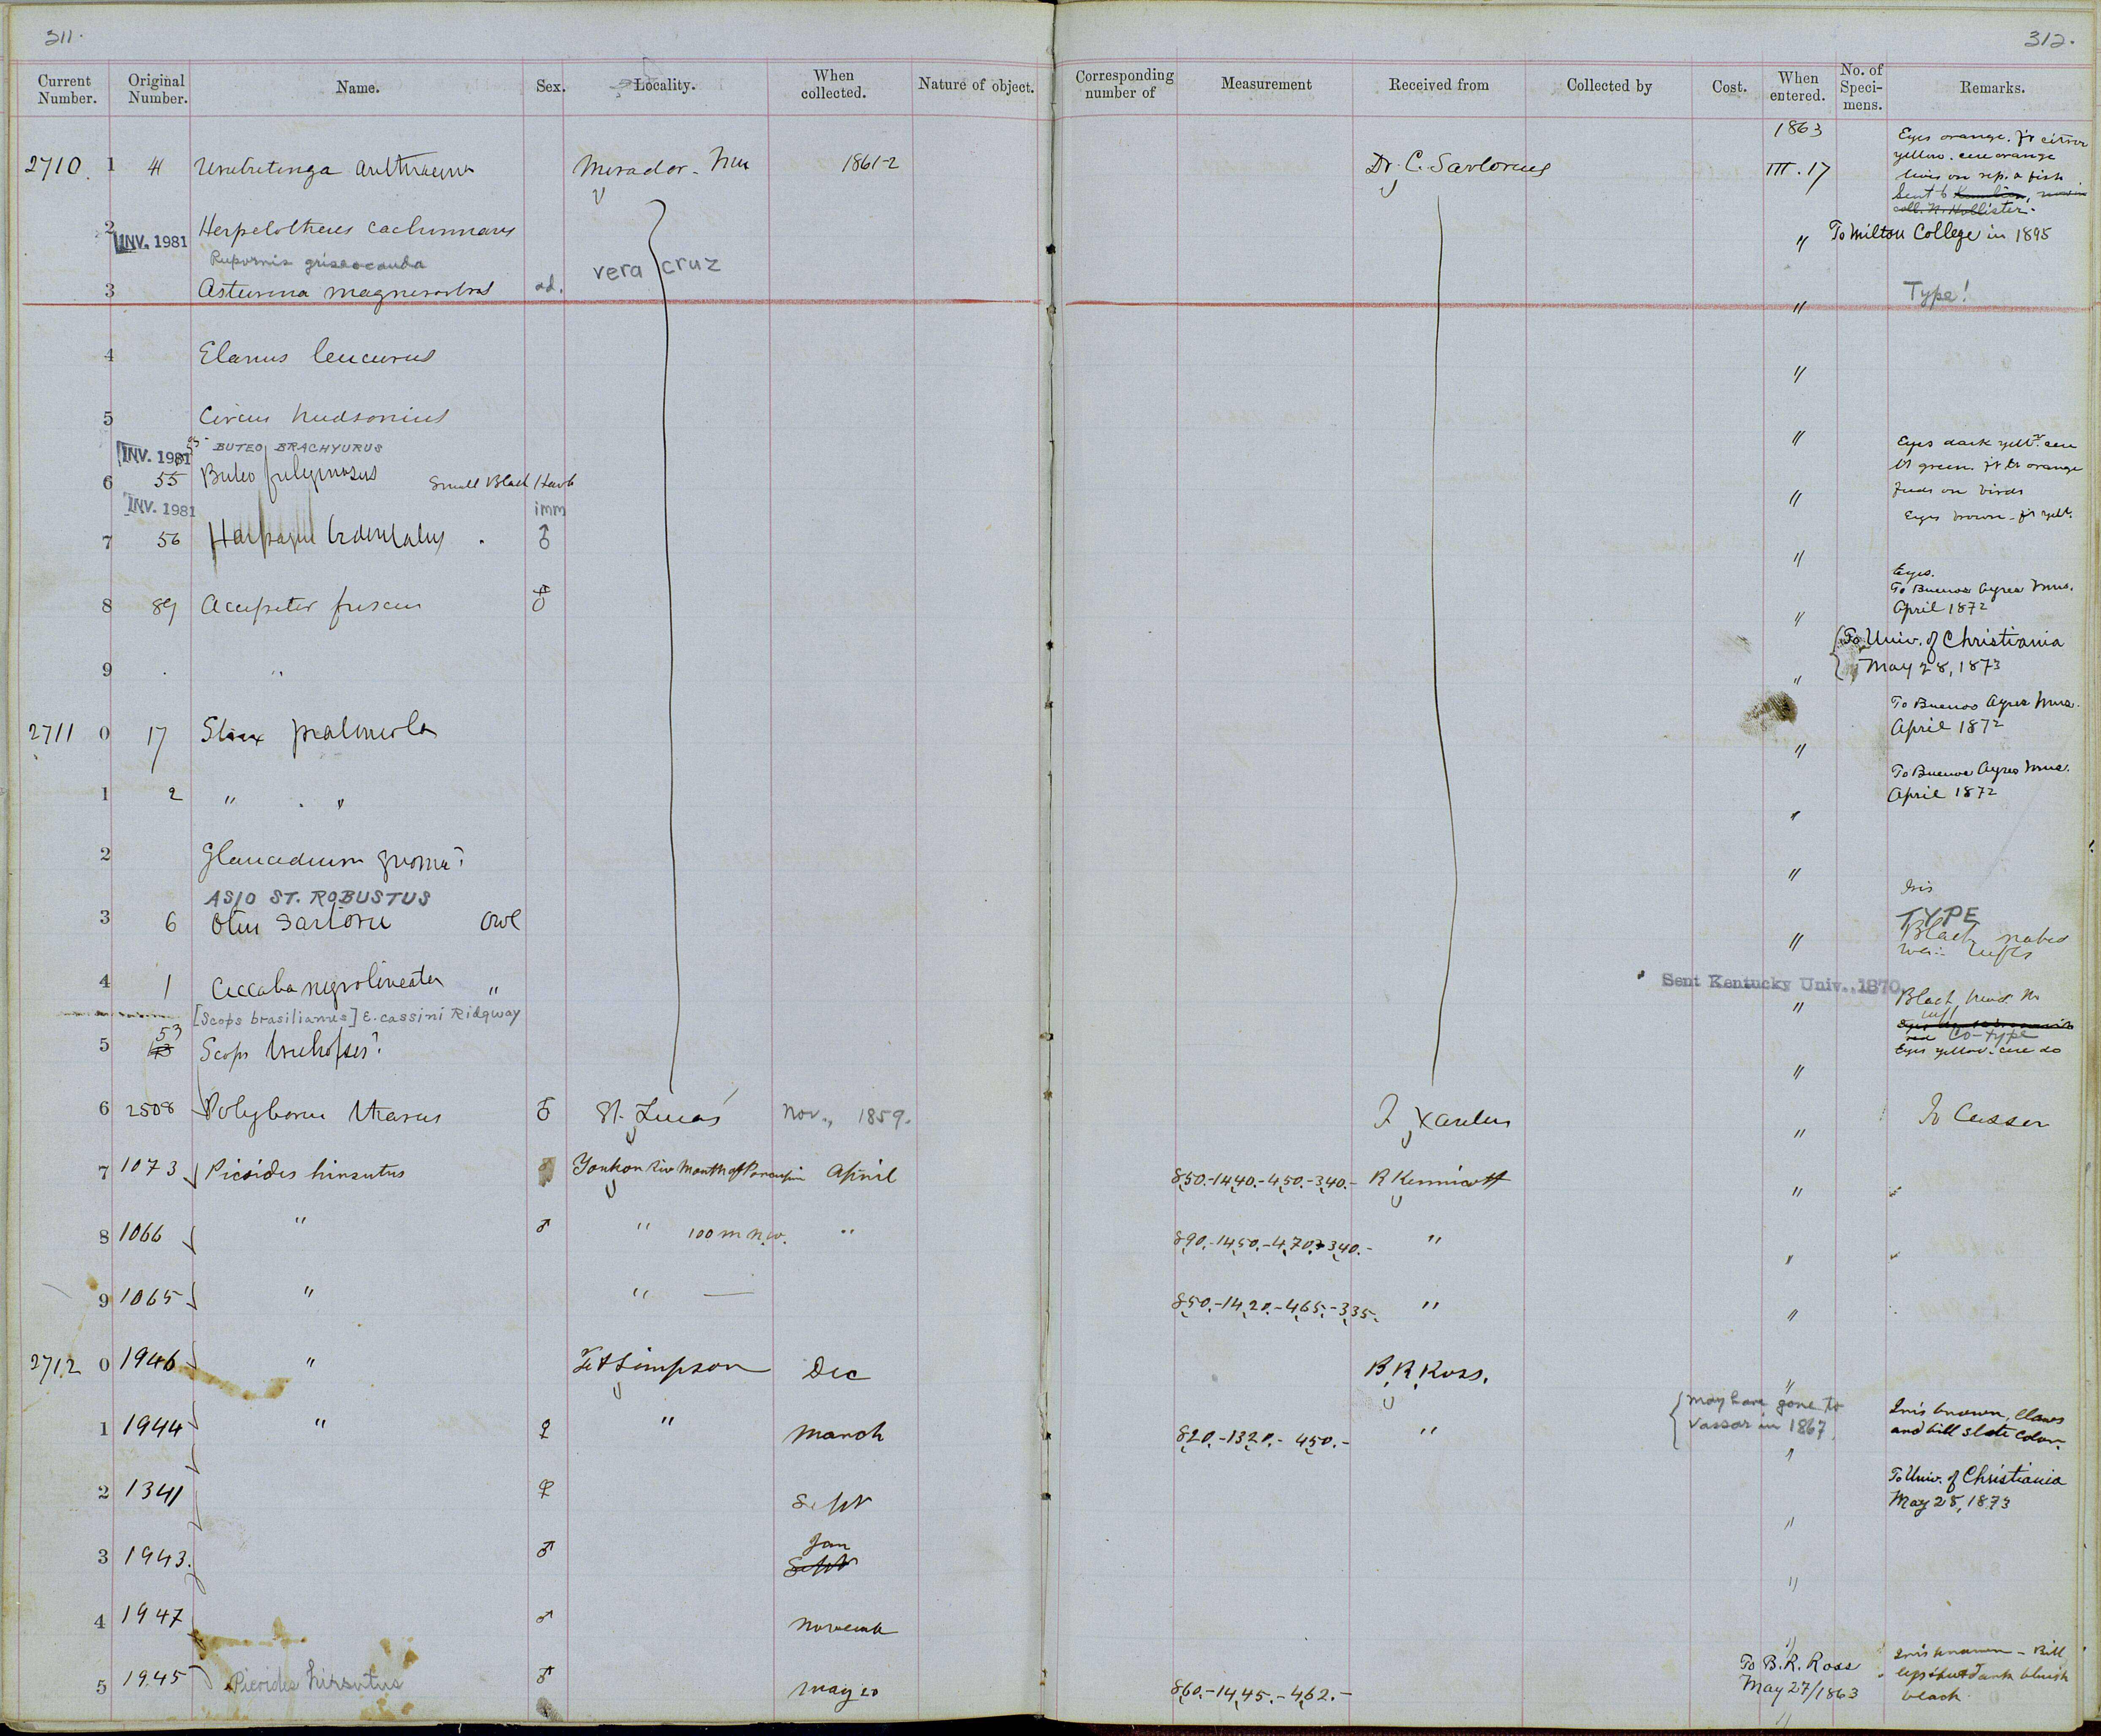 311.
312.
Current Number. Original Number. Name. Sex. Locality. When collected. Nature of object. Corresponding number of Measurement Received from Collected by Cost. When entered. No. of Specimens. Remarks.
1863 Eyes orange. ft citron
yellow. cere orange
2710. 1 41 Urubitinga anthracina Mirador. Mex 1861-2 Dr. C. Sartorius III. 17
lives on rep. & fish
Sent to Kumlien,
coll. N. Hollister.
2 Herpetotheres cachinnans " To Milton College in 1895
INV. 1981
Rupornis griseocauda
vera cruz
3 Asturina magnirostris ad. " Type!
4 Elanus leucurus "
5 Circus hudsonius "
INV. 1981 BUTEO BRACHYURUS
Eyes dark yell. cere
lt green. ft lt orange
6 55 Buteo fuliginosus Small Black Hawk "
feeds on birds
INV. 1981 imm
Eyes brown - ft yell.
7 56 Harpagus bidentatus ♂ "
Eyes.
To Buenos Ayres Mus.
8 89 Accipiter fuscus ♂ " April 1872
9 " " To Univ. of Christiania
May 28, 1873
2711 0 17 Syrax psaltricola "
To Buenos Ayres Mus.
April 1872
1 2 " " "
To Buenos Ayres Mus.
April 1872
2 Glaucidium gnoma? "
Iris
ASIO ST. ROBUSTUS TYPE
3 6 Otus Sartorii owl "
Black naked
4 1 Ciccaba nigrolineata " "
Sent Kentucky Univ., 1870.
Black
[Scops brasilianus] E. cassini Ridgway
red Co-type
5 53 Scops trichopsis? " Eyes yellow. cere do
6 2508 Polyborus tharus ♂ St. Lucas Nov., 1859. J Xantus " To Cassin
7 1073 Picoides hirsutus ♂ Youkon Riv Mouth of Porcupin April 850.-1440.-450.-340.- R Kennicott "
8 1066 " ♂ " 100 m n.w. " 890.-1450.-470.-340.- " "
9 1065 " " — 850.-1420.-465.-335. " "
2712 0 1946 " Ft Simpson Dec B. R. Ross. "
may have gone to
Vassar in 1867
1 1944 " ♀ " March 820.-1320.-450.- " "
Iris brown, Claws
and bill slate color.
2 1341 ♀ Sept "
To Univ. of Christiania
May 28, 1873
Jan
3 1943. ♂ Sept "
4 1947 ♂ Novemb "
5 1945 Picoides hirsutus ♂ May 20 860.-1445.-462.-
To B. R. Ross
May 27/1863
Iris brown - Bill
dark bluish
black
"